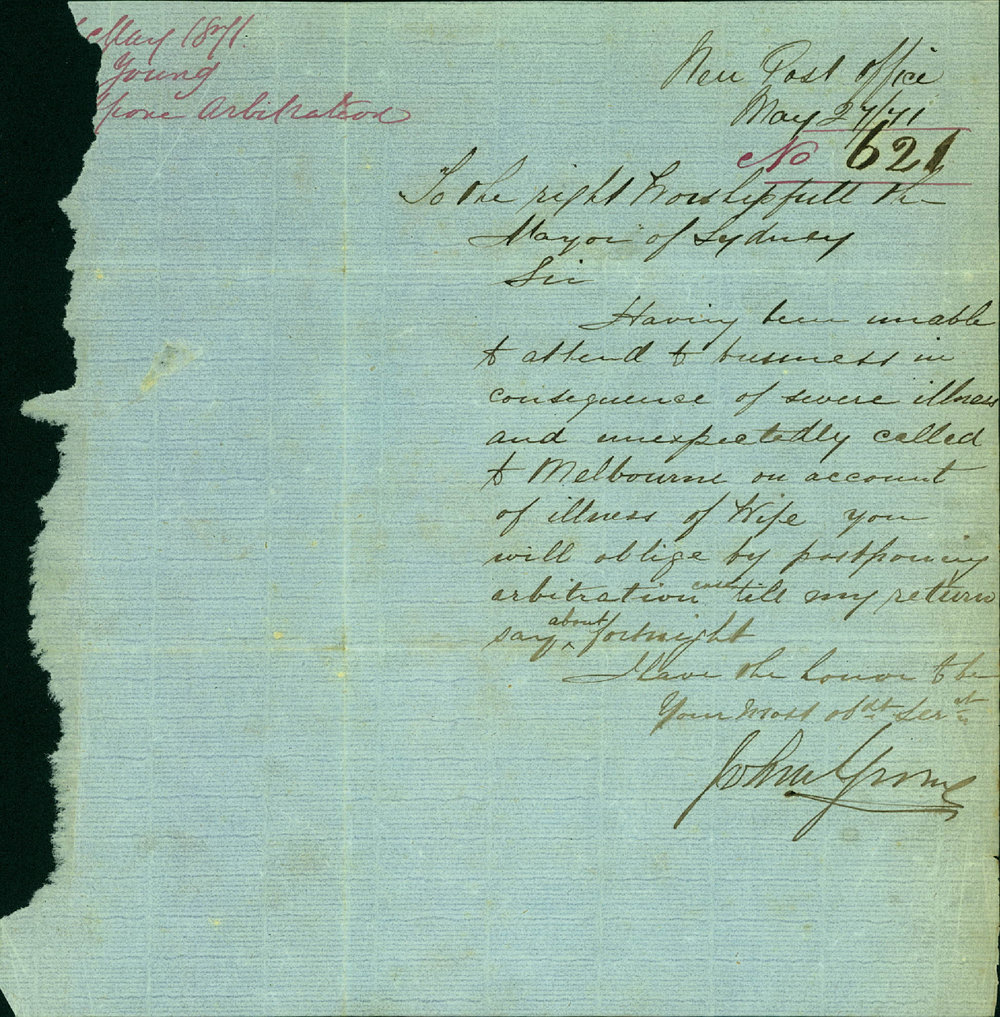 May 1871
Young
pone Arbitration
New Post office
May 27/71
No 621
To the right Worshipfull the
Mayor of Sydney
Sir
Having been unable
to attend to business in
consequence of severe illness
and unexpectedly called
to Melbourne on account
of illness of Wife you
will oblige by postponing
arbitration case till my return
say about fortnight
I have the honor to be
Your most obdt Servt
John Young